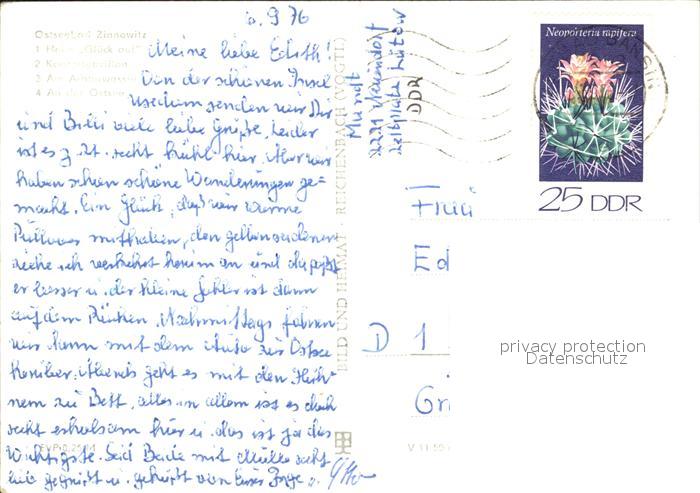 6.9.76
Ostseebad Zinnowitz
1 Heim "Glück auf"
2 Konzertpavillon
3 Am Achterwasser
4 An der Ostsee
Meine liebe Edith!
Von der schönen Insel
Usedom senden wir Dir
und Beide viele liebe Grüße. Leider
ist es z. Zt. recht kühl hier. Aber wir
haben schon schöne Wanderungen ge-
macht. Ein Glück, daß wir warme
Pullover mithaben, den
ziehe ich verkehrt herum an und da paßt
er besser u. der kleine Fehler ist dann
auf dem Rücken. Nachmittags fahren
wir dann mit dem Auto zur Ostsee
Abends geht es mit den Hüh-
nern zu Bett, alles in allem ist es doch
recht erholsam hier u. das ist ja das
Wichtigste. Seid Beide mit Mutti recht
lieb gegrüßt u. geküßt von Eurer Inge u.
EVP 0,25 M
BILD UND HEIMAT · REICHENBACH (VOGTL)
V 11 50
Mundt
2221 Neuendorf
Zeltplatz Lütow
DDR
Frau
Ed
D 1
Gri
Neoporteria rapifera
25 DDR
BANSIN
privacy protection
Datenschutz